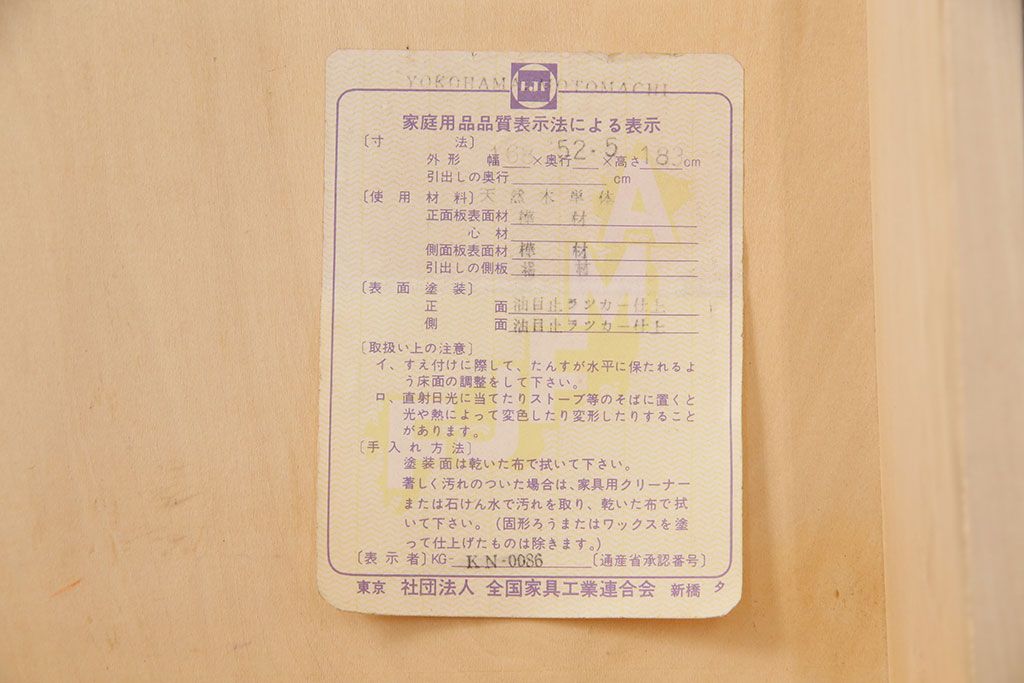 YOKOHAMA MOTOMACHI
HJF
家庭用品品質表示法による表示
〔寸法〕
外形 幅 168 ×奥行 52.5 ×高さ 183 cm
引出しの奥行 cm
〔使用材料〕天然木単体
正面板表面材 樺材
心材
側面板表面材 樺材
引出しの側板 材
〔表面塗装〕
正面 油目止ラツカー仕上
側面 油目止ラツカー仕上
〔取扱い上の注意〕
イ、すえ付けに際して、たんすが水平に保たれるよ
う床面の調整をして下さい。
ロ、直射日光に当てたりストーブ等のそばに置くと
光や熱によって変色したり変形したりすること
があります。
〔手入れ方法〕
塗装面は乾いた布で拭いて下さい。
著しく汚れのついた場合は、家具用クリーナー
または石けん水で汚れを取り、乾いた布で拭
いて下さい。(固形ろうまたはワックスを塗
って仕上げたものは除きます。)
〔表示者〕KG- KN-0086 〔通産省承認番号〕
東京 社団法人 全国家具工業連合会 新橋 タ